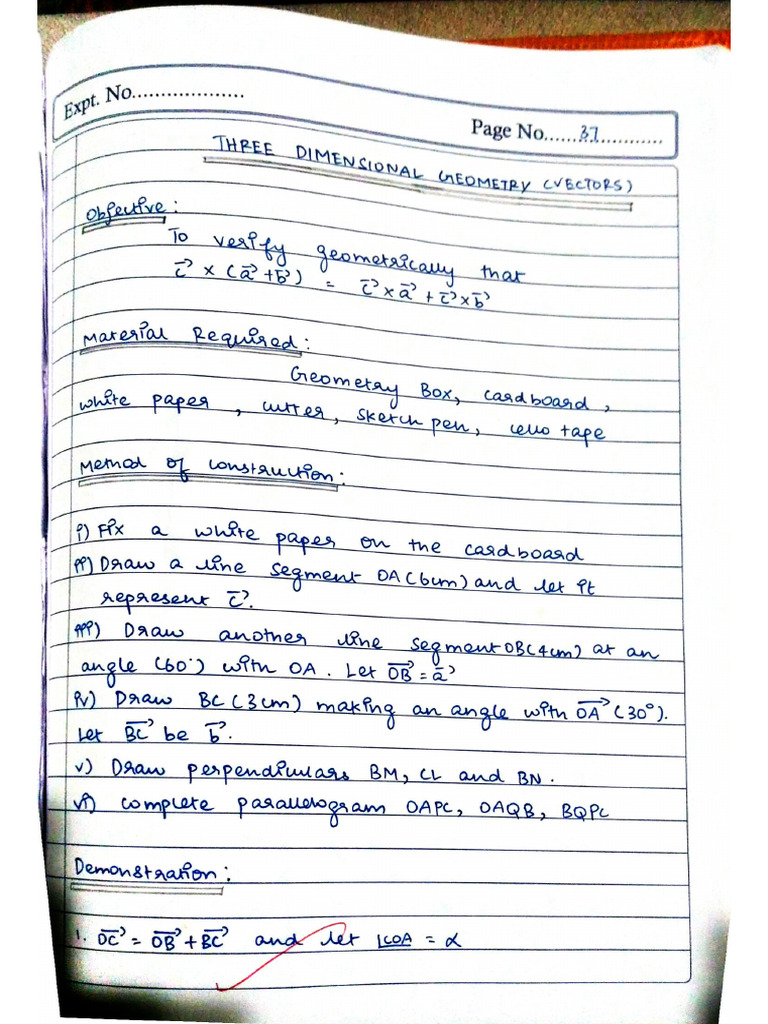 Expt. No...................
Page No......37............
THREE DIMENSIONAL GEOMETRY (VECTORS)
Objective:
To verify geometrically that
c⃗ × (a⃗ + b⃗) = c⃗ × a⃗ + c⃗ × b⃗
Material Required:
Geometry Box, cardboard,
white paper, cutter, sketch pen, cello tape
Method of construction:
i) Fix a white paper on the cardboard
ii) Draw a line segment OA (6cm) and let it
represent c⃗.
iii) Draw another line segment OB (4cm) at an
angle (60°) with OA. Let OB⃗ = a⃗
iv) Draw BC (3cm) making an angle with OA⃗ (30°).
Let BC⃗ be b⃗.
v) Draw perpendiculars BM, CL and BN.
vi) complete parallelogram OAPC, OAQB, BQPC
Demonstration:
1. OC⃗ = OB⃗ + BC⃗ and let ∠COA = α